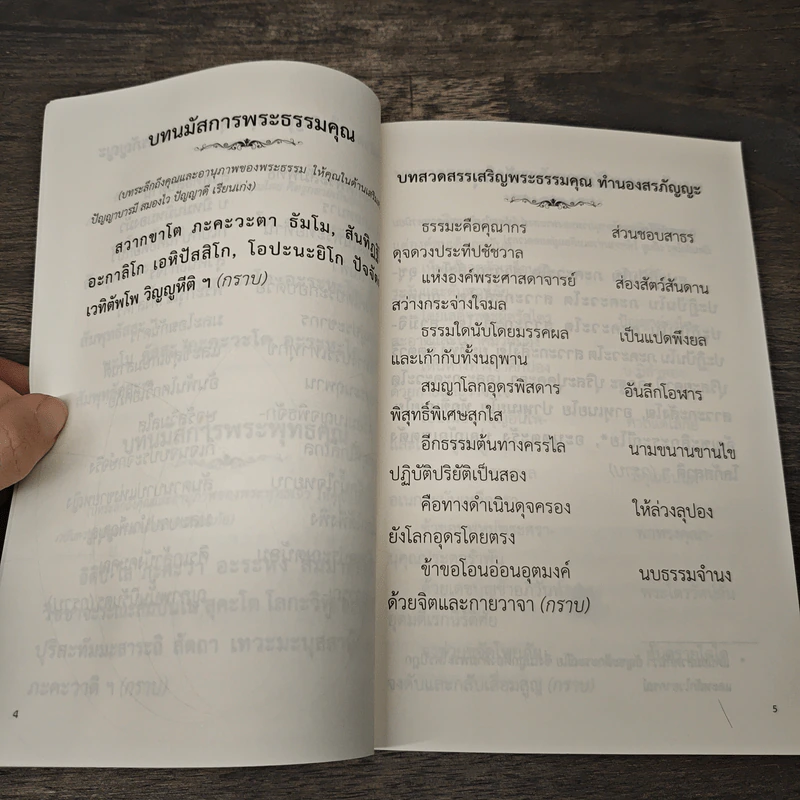 บทนมัสการพระธรรมคุณ
(บทระลึกถึงคุณและอานุภาพของพระธรรม ให้คุณในด้าน
ปัญญาบารมี สมองไว ปัญญาดี เรียนเก่ง)
สวากขาโต ภะคะวะตา ธัมโม,
อะกาลิโก เอหิปัสสิโก, โอปะนะยิโก
เวทิตัพโพ วิญญูหีติ ฯ (กราบ)
4
บทสวดสรรเสริญพระธรรมคุณ ทำนองสรภัญญะ
ธรรมะคือคุณากร ส่วนชอบสาธร
ดุจดวงประทีปชัชวาล
แห่งองค์พระศาสดาจารย์ ส่องสัตว์สันดาน
สว่างกระจ่างใจมล
ธรรมใดนับโดยมรรคผล เป็นแปดพึงยล
และเก้ากับทั้งนฤพาน
สมญาโลกอุดรพิสดาร อันลึกโอฬาร
พิสุทธิ์พิเศษสุกใส
อีกธรรมต้นทางครรไล นามขนานขานไข
ปฏิบัติปริยัติเป็นสอง
คือทางดำเนินดุจครอง ให้ล่วงลุปอง
ยังโลกอุดรโดยตรง
ข้าขอโอนอ่อนอุตมงค์ นบธรรมจำนง
ด้วยจิตและกายวาจา (กราบ)
5